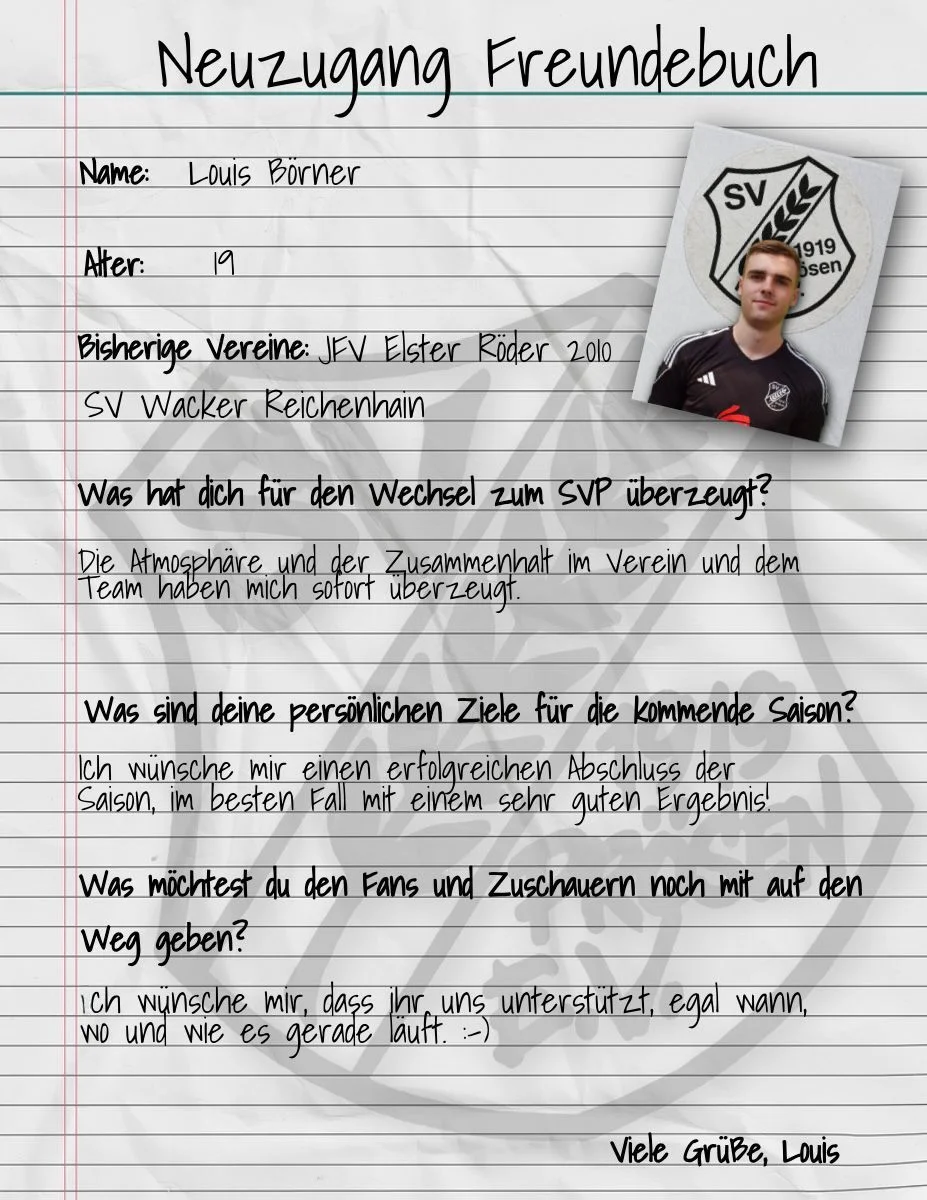 Neuzugang Freundebuch
Name: Louis Börner
SV
1919
Alter: 19
Bisherige Vereine: JFV Elster Röder 2010
SV Wacker Reichenhain
SV
Was hat dich für den Wechsel zum SVP überzeugt?
Die Atmosphäre und der Zusammenhalt im Verein und dem
Team haben mich sofort überzeugt.
Was sind deine persönlichen Ziele für die kommende Saison?
1919
Ich wünsche mir einen erfolgreichen Abschluss der
Saison, im besten Fall mit einem sehr guten Ergebnis!
Was möchtest du den Fans und Zuschauern noch mit auf den
Weg geben?
Ich wünsche mir, dass ihr uns unterstützt, egal wann,
wo und wie es gerade läuft. :-)
e.V.
Viele Grüße, Louis